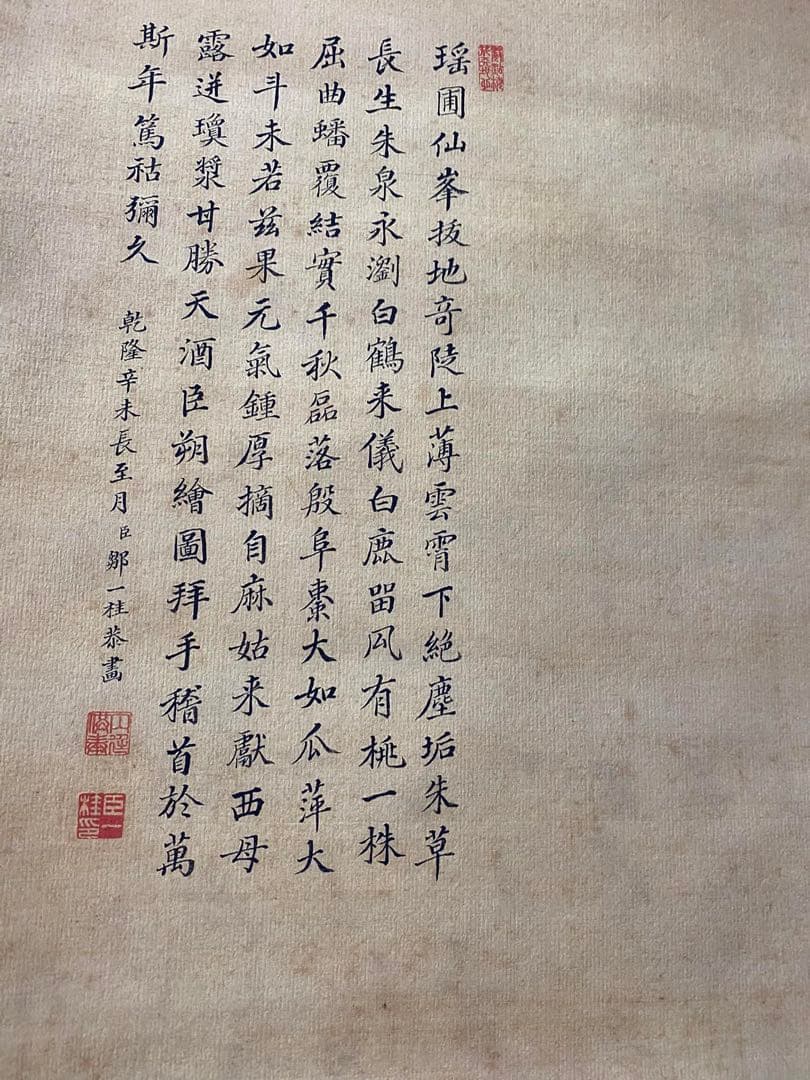 瑶圃仙峯拔地奇陡上薄雲霄下絶塵垢朱草
長生朱泉永瀏白鶴来儀白鹿留有桃一株
屈曲蟠覆結實千秋磊落殷阜棗大如瓜萍大
如斗未若兹果元氣鍾厚摘自麻姑来獻西母
露迸瓊漿甘勝天酒臣朔繪圖拜手稽首於萬
斯年篤祜彌久
乾隆辛未長至月臣鄒一桂恭畫
臣一桂印